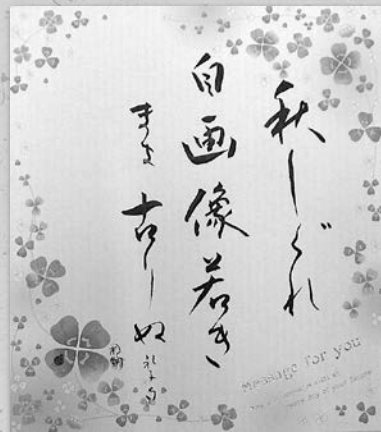 秋しぐれ
自画像若き
まま古りぬ
Message for you